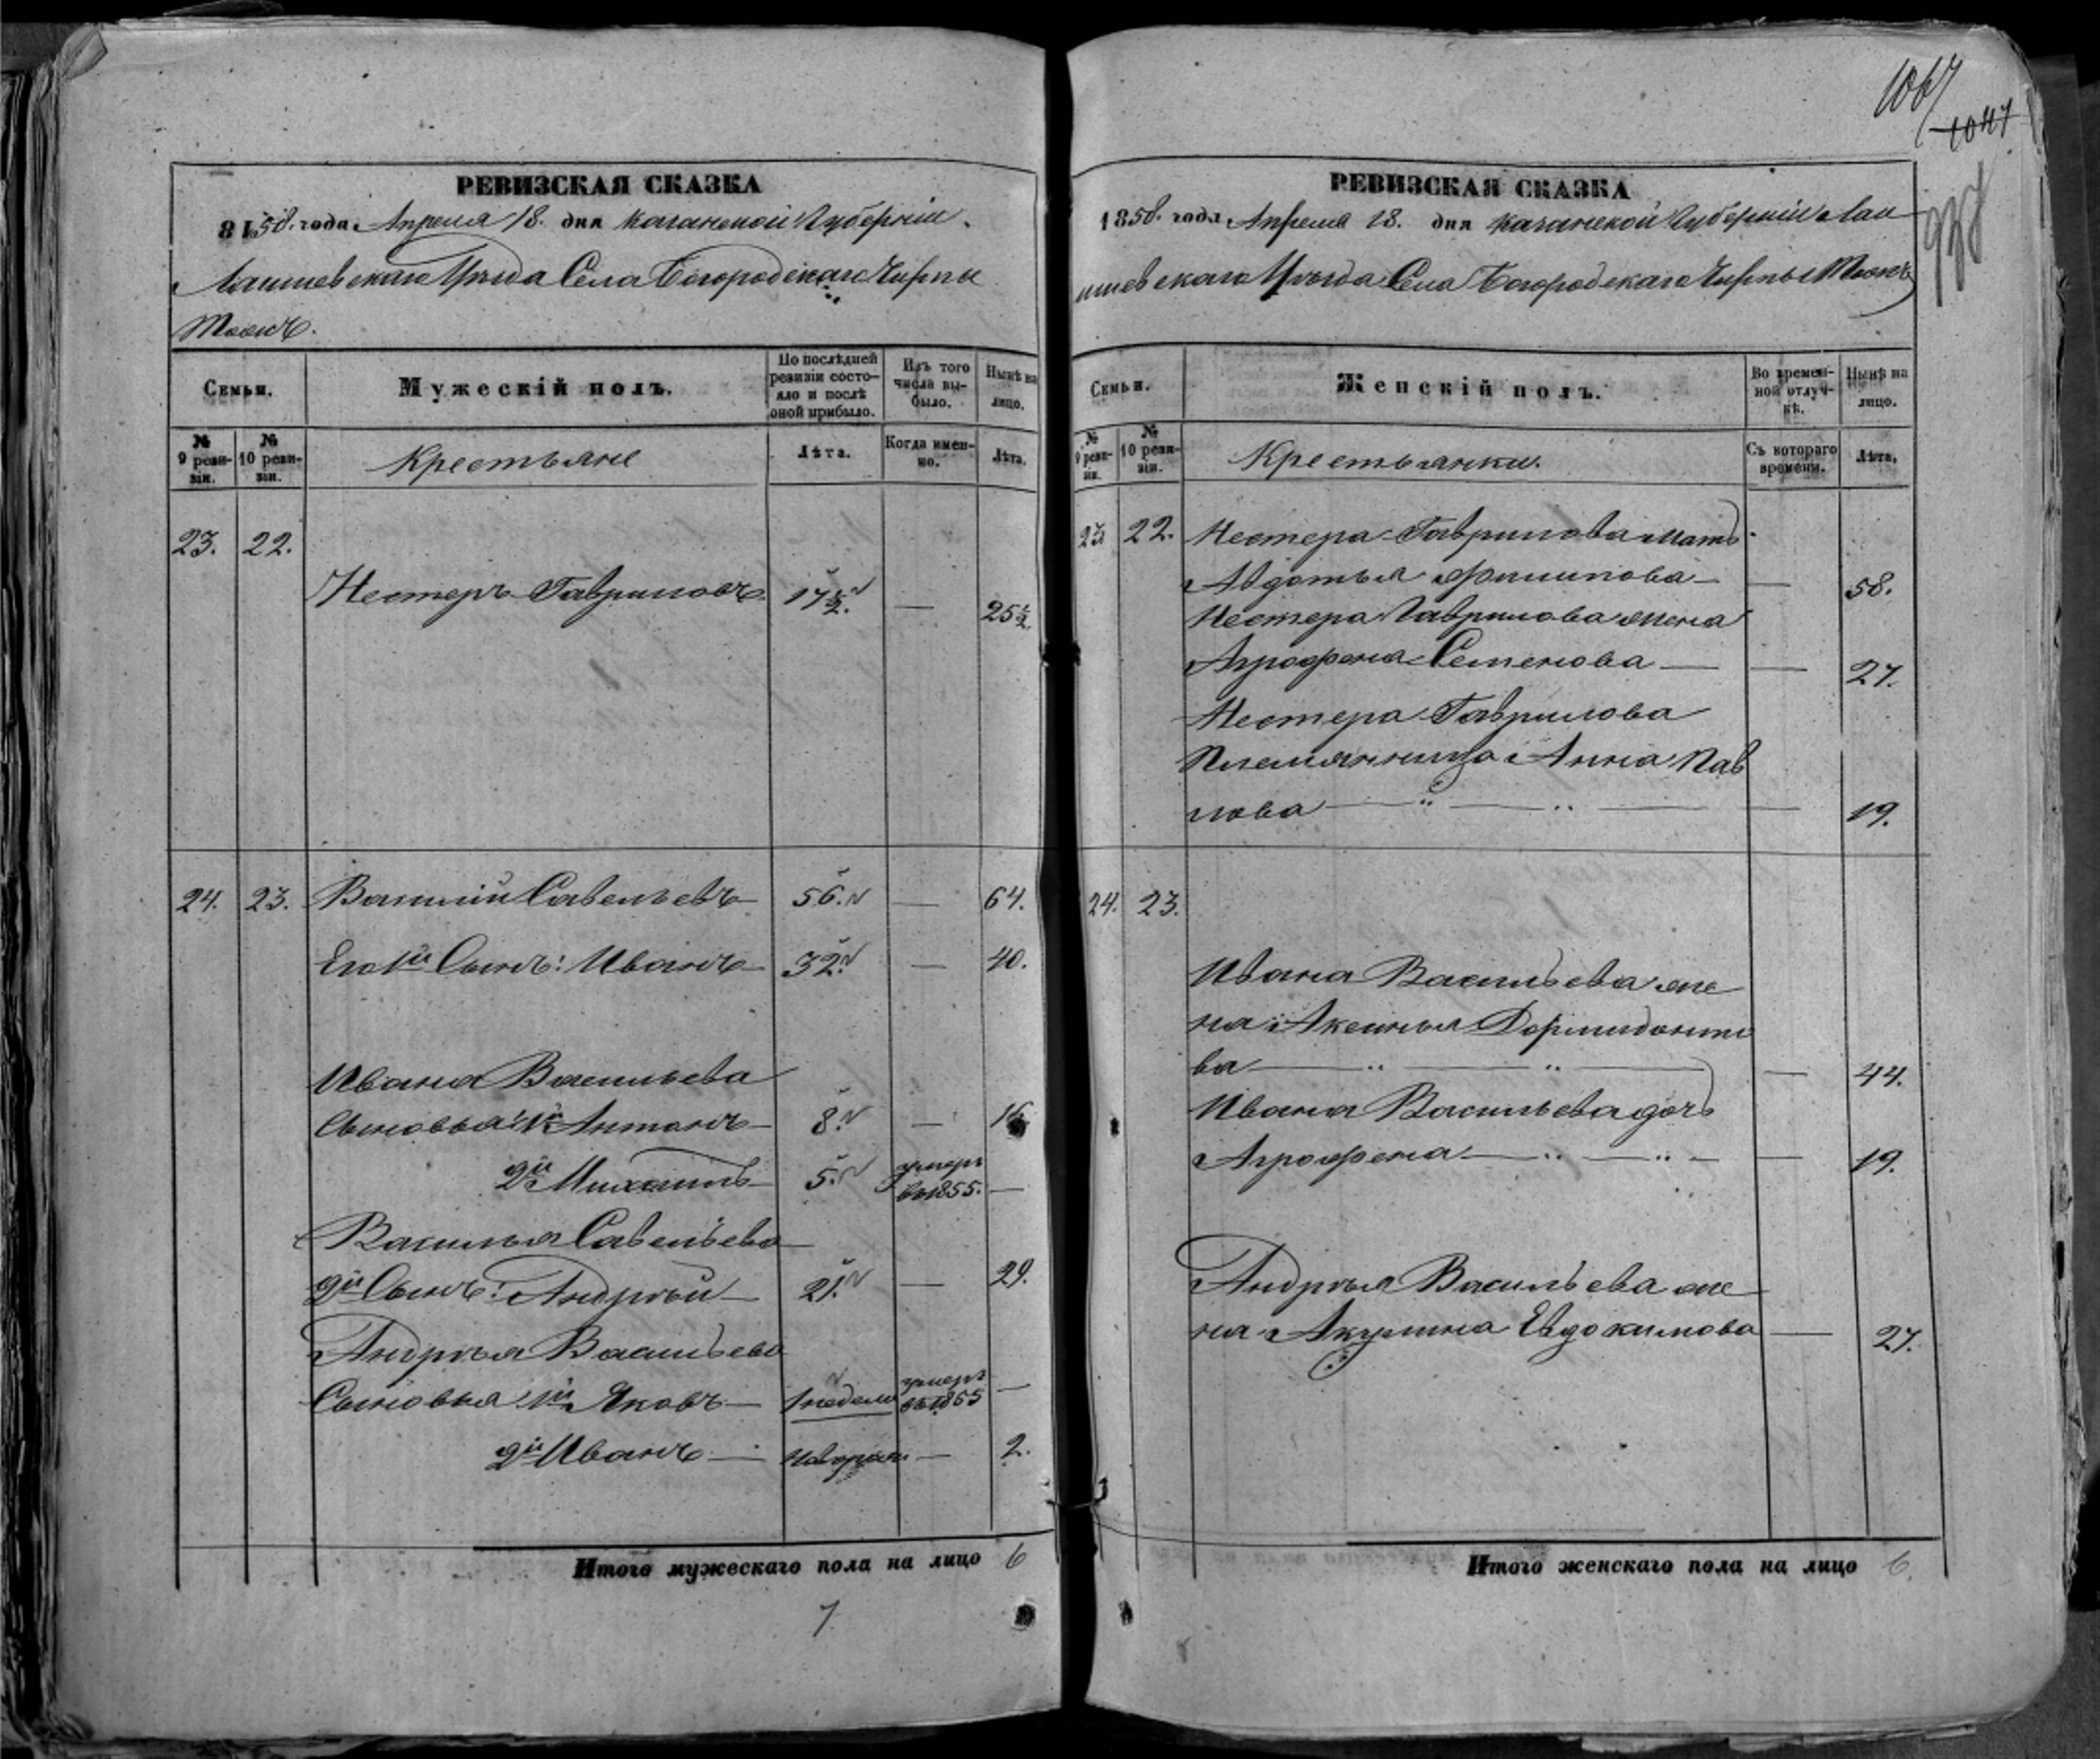 РЕВИЗСКАЯ СКАЗКА
1858. года Апреля 18. дня Казанской Губерніи
Лаишевскаго Уѣзда Села Богородскаго Чирпы
Тожъ.
Семьи.
Мужескій полъ.
По послѣдней ревизіи состо-
яло и послѣ
оной прибыло.
Изъ того
числа вы-
было.
Нынѣ на
лицо.
№
9 реви-
зіи.
№
10 реви-
зіи.
Крестьяне
Лѣта.
Когда имен-
но.
Лѣта.
23. 22.
Нестеръ Гавриловъ 17½. — 25½.
24. 23. Василій Савельевъ 56. — 64.
Его 1й Сынъ: Иванъ 32. — 40.
Ивана Васильева
Сыновья: 1й Антонъ 8. — 16
2й Михаилъ 5. умеръ въ 1855. —
Василья Савельева
2й Сынъ: Андрѣй 21. — 29.
Андрѣя Васильева
Сыновья 1й Яковъ 1 недели умеръ въ 1855 —
2й Иванъ — 2.
Итого мужескаго пола на лицо 6
7
1067
1047
938
РЕВИЗСКАЯ СКАЗКА
1858. года Апреля 18. дня Казанской Губерніи Лаи
шевскаго Уѣзда Села Богородскаго Чирпы Тожъ
Семьи.
Женскій полъ.
Во времен-
ной отлуч-
кѣ.
Нынѣ на
лицо.
№
9 реви-
зіи.
№
10 реви-
зіи.
Крестьянки.
Съ котораго
времени.
Лѣта.
23 22. Нестера Гаврилова мать
Авдотья Филипова — 58.
Нестера Гаврилова жена
Агрофена Семенова — 27.
Нестера Гаврилова
Племянница Анна Пав
лова — 19.
24. 23.
Ивана Васильева же
на Аксинья Дормидонто
ва — 44.
Ивана Васильева дочь
Агрофена — 19.
Андрѣя Васильева же
на Акулина Евдокимова — 27.
Итого женскаго пола на лицо 6.